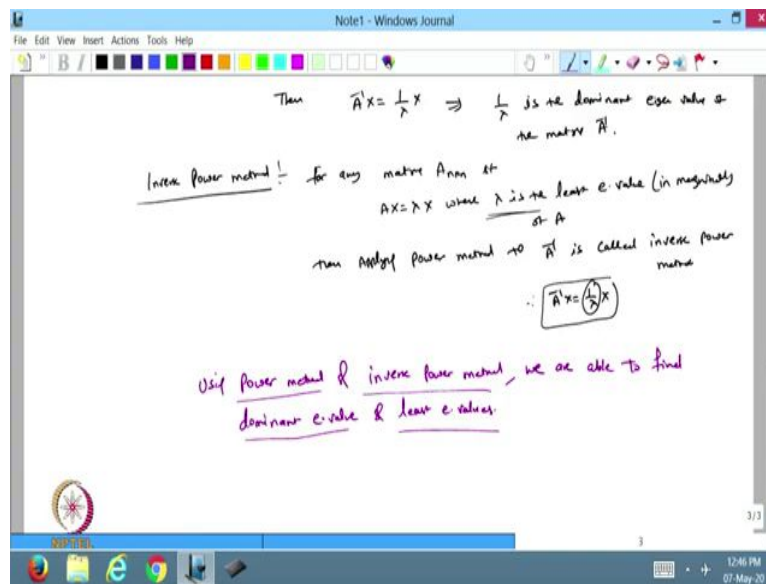 Note1 - Windows Journal
File Edit View Insert Actions Tools Help
B I
Then A⁻¹x = 1/λ x ⇒ 1/λ is the dominant eigen value of
the matrix A⁻¹.
Inverse Power method :- for any matrix Anxn st
AX = λX where λ is the least e.value (in magnitude)
of A
then Applying Power method to A⁻¹ is called inverse power
method
∴ A⁻¹x = (1/λ) x
Using Power method & inverse power method, we are able to find
dominant e.value & least e.values.
NPTEL
3/3
3
12:46 PM
07-May-20